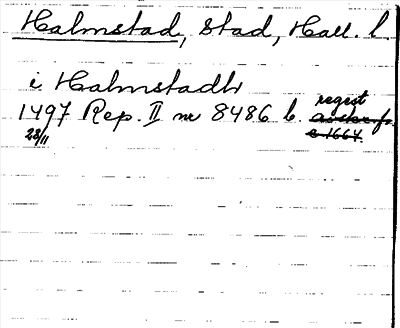 Halmstad, Stad, Hall. l.
i Halmstadh
1497 Rep. II nr 8486 b. regest
28/11 c 1664.